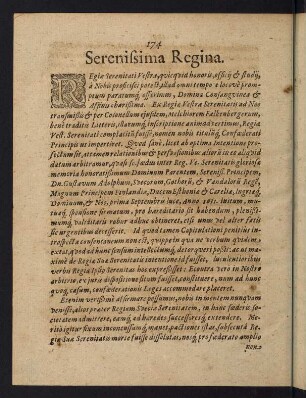 174
Serenissima Regina.
REgiæ Serenitati Vestræ, quicquid honoris, officij & studij,
à Nobis proficisci potest, aliud omni tempore & loco præ
promptum paratumq; offerimus, Domina Consanguinea &
Affinis charissima. Ex Regiæ Vestræ Serenitatis ad Nos
transmissis & per Colonellum ejusdem, Melchiorem Falkenberg nuper
bene traditis Litteris, illarumq; inscriptione animadvertimus, Regiæ
Vest. Serenitati complacitum fuisse, nomen nobis titulumq; Confœderati
Principis ut impertiret. Quod sanè, licet ab optima intentione pro-
fectum sit, attamen relatione & persuasionibus alior.
datum arbitramur, quasi fœdus inter Reg. V. Serenitatis gloriosæ
memoriæ honoratissimum Dominum Parentem, Sereniss. Principem,
Dn. Gustavum Adolphum, Svecorum, Gothorū, & Vandalorū Regē,
Magnum Principem Finlandiæ, Ducem Esthoniæ & Careliæ, Ingriæq;
Dominum, & Nos, prima Septembris huic, anno 1631. initum, mutuò
in hæredes transiret, & pro hæreditario sit habendum, plenissi-
mumq; validitatis robur adhuc obtineat, etsi unus vel alter Fatis
sic urgentibus decesserit. Id quod tamen Capitulationi penitius in-
transpecta consentaneum non est, quippe in qua ne verbum quidem
exstat, quod ad hunc sensum intelligendumq; alterari queat posset: ac ni
mens de Regia Sua Serenitatis intentione id fuisset, luculentioribus
verbis Regia ipsius Serenitas hoc expressisset: Econtra verò in Nostro
arbitrio, ex jurta dispositione illius fuisset, constituere, num ad hunc
quoq; casum, confœderationis Leges accommodare placeret.
Etenim verissimè affirmare possumus, nobis in mentem nunquam
venisse, alius præter Regiam Sveciæ Serenitatem, in hanc fœderis so-
cietatem admittere, eamq; ad hæredes successoresq; extendere. Me-
ritò igitur fixum inconcussumq; manet, pactiones istas, subsecuta Re-
giæ Suæ Serenitatis morte fuisse dissolutas, neq; pro fœderato amplius
nos